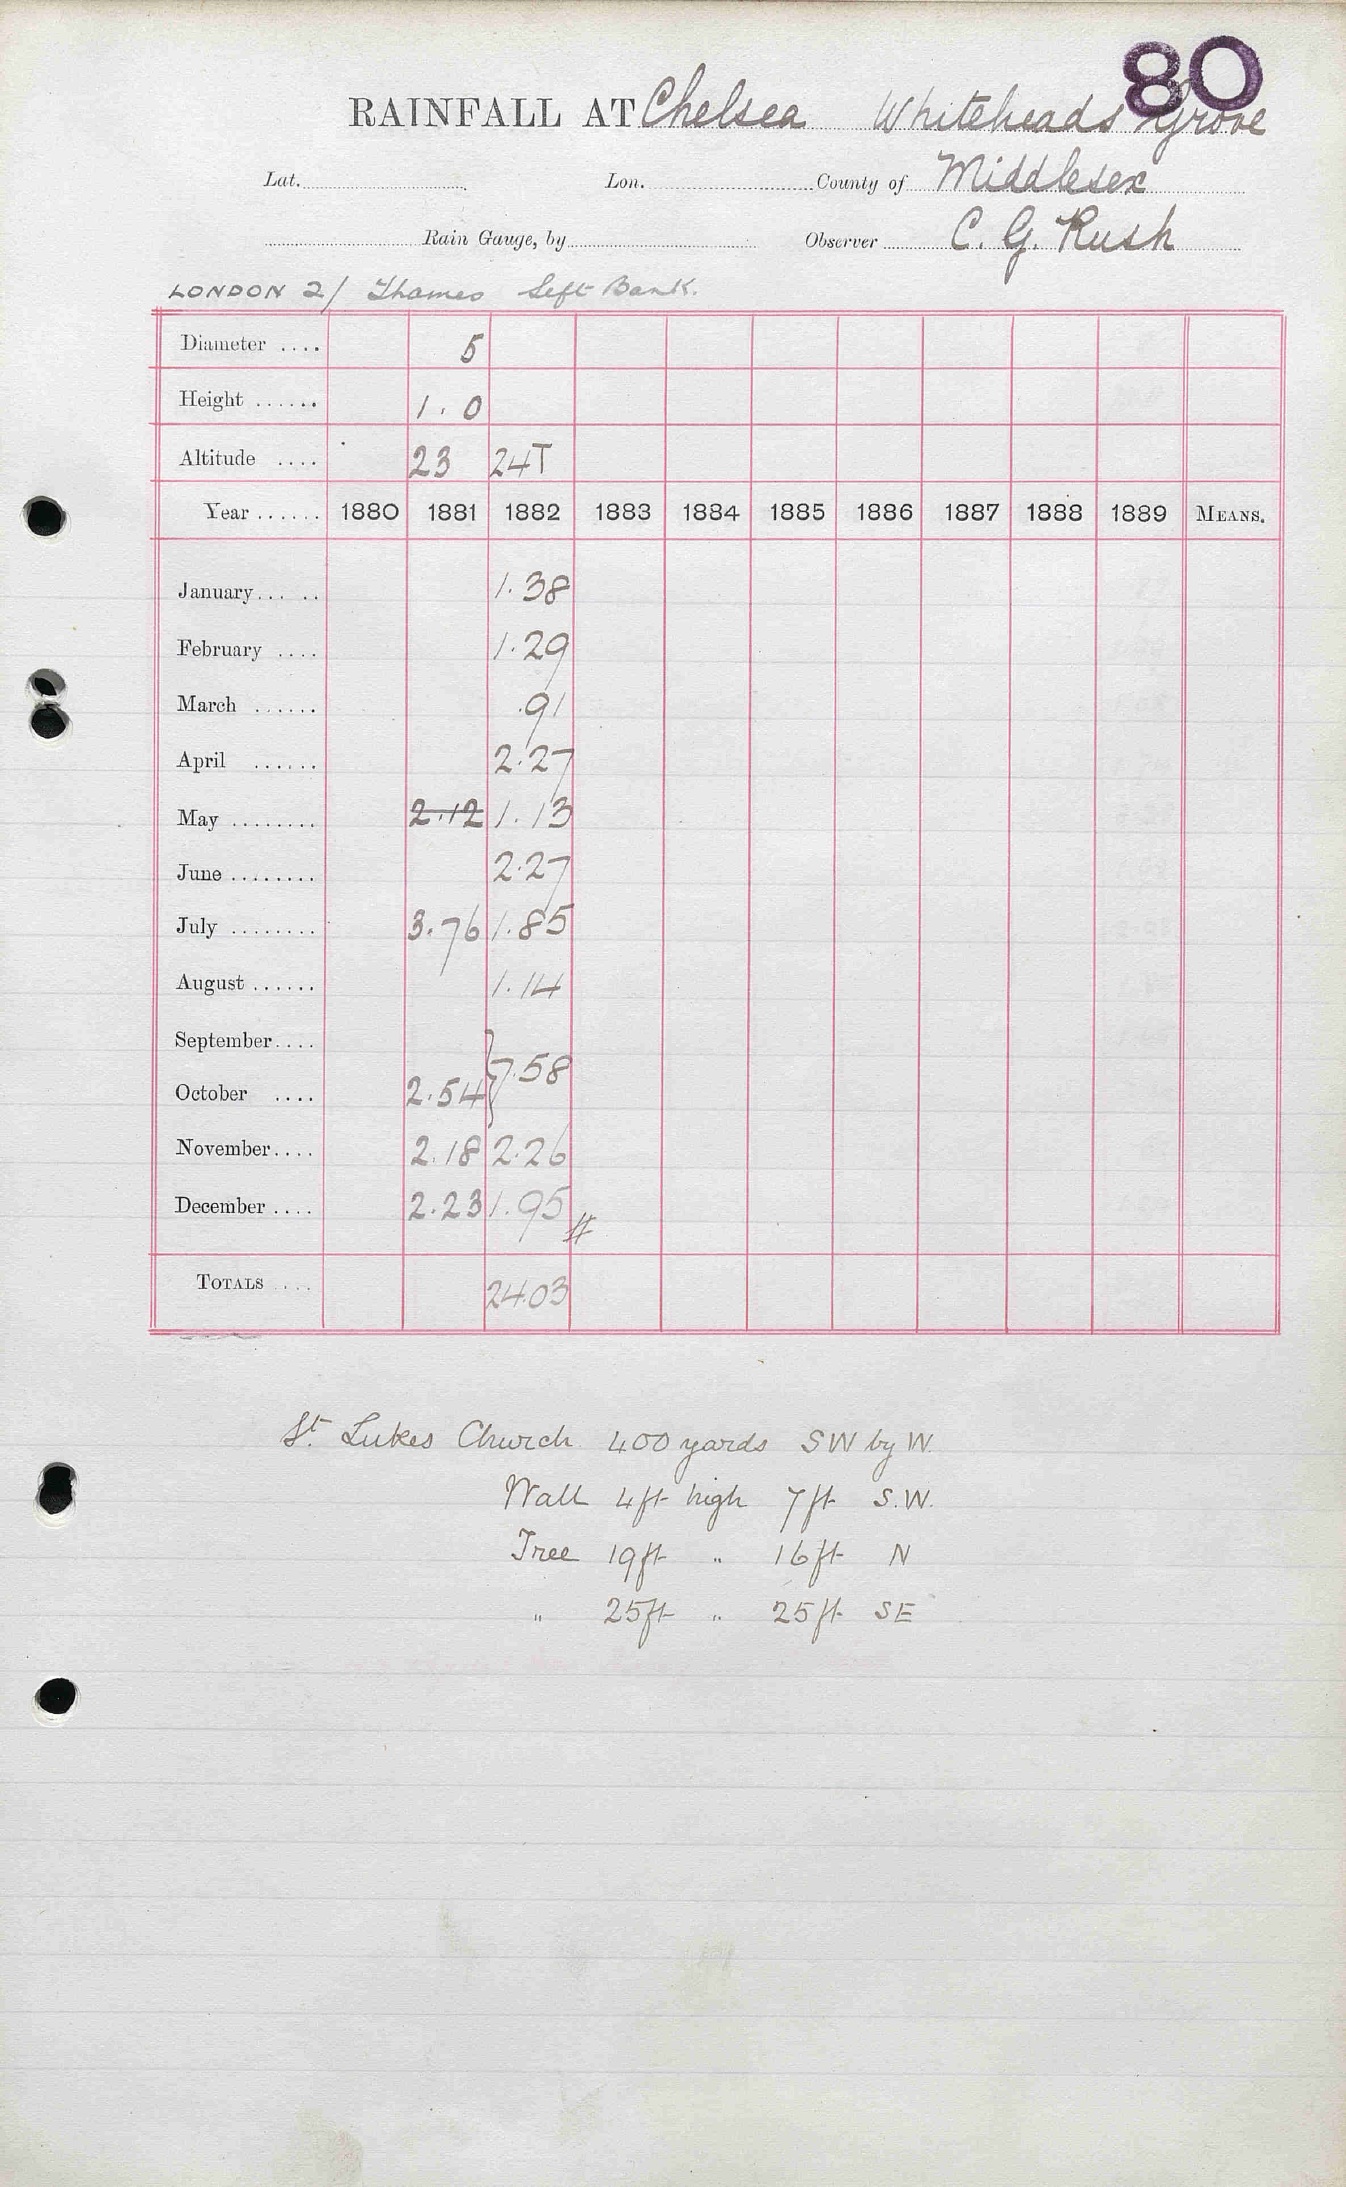 80
RAINFALL AT Chelsea Whiteheads Grove
Lat. Lon. County of Middlesex
Rain Gauge, by Observer C. G. Rush
LONDON 2/ Thames Left Bank.
Diameter .... 5
Height ...... 1.0
Altitude .... 23 24T
Year ...... 1880 1881 1882 1883 1884 1885 1886 1887 1888 1889 MEANS.
January..... 1.38
February .... 1.29
March ...... .91
April ...... 2.27
May ........ 2.12 1.13
June ........ 2.27
July ........ 3.76 1.85
August ...... 1.14
September....
October .... 2.54 } 7.58
November.... 2.18 2.26
December .... 2.23 1.95 #
TOTALS .... 24.03
St. Lukes Church 400 yards SW by W.
Wall 4ft high 7ft S.W.
Tree 19ft " 16ft N
" 25ft " 25ft SE